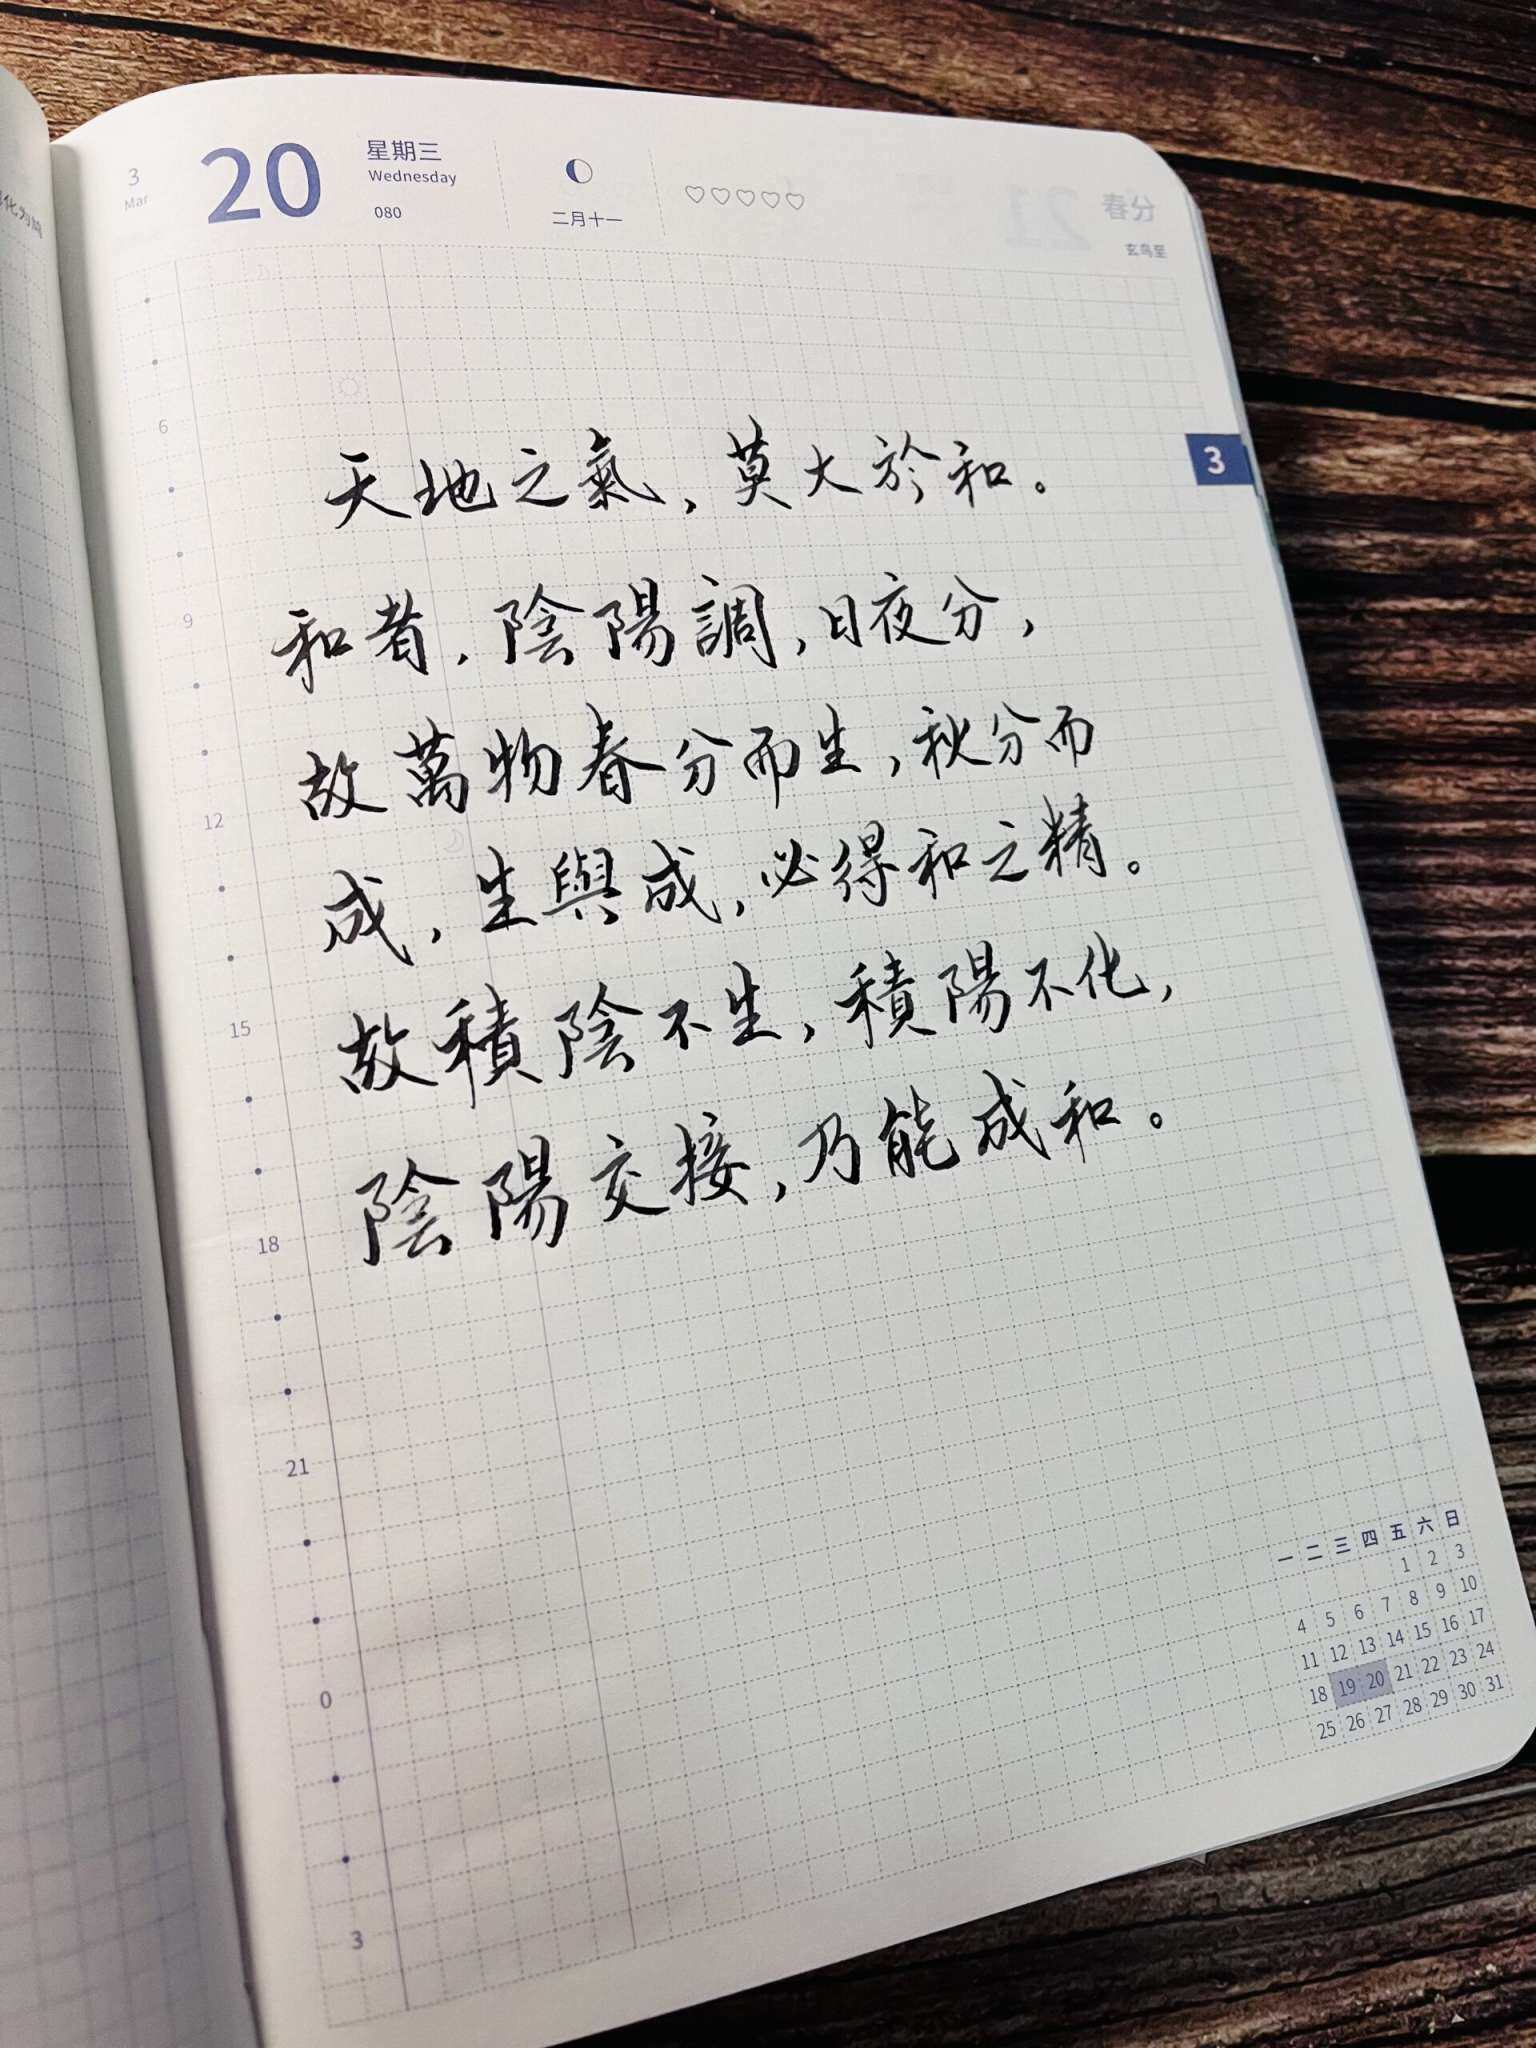 3
Mar
20
星期三
Wednesday
080
二月十一
春分
玄鸟至
3
6
天地之氣，莫大於和。
9
和者，陰陽調，日夜分，
12
故萬物春分而生，秋分而
成，生與成，必得和之精。
15
故積陰不生，積陽不化，
18
陰陽交接，乃能成和。
21
0
3
一 二 三 四 五 六 日
1 2 3
4 5 6 7 8 9 10
11 12 13 14 15 16 17
18 19 20 21 22 23 24
25 26 27 28 29 30 31